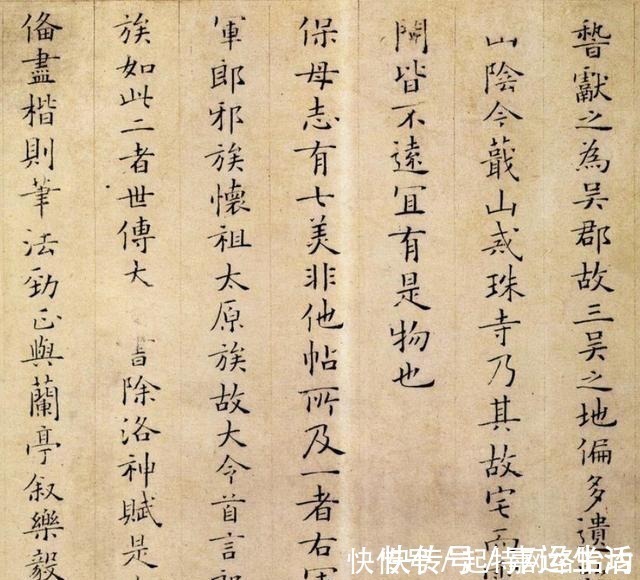 獻之為吳郡故三吳之地偏多遺
山陰今蕺山戒珠寺乃其故宅而
皆不遠宜有是物也
保母志有七美非他帖所及一者右軍
軍郎邪族懷祖太原族故大令首言
族如此二者世傳大 除洛神賦是
俻盡楷則筆法勁正與蘭亭叙樂毅
快传号/